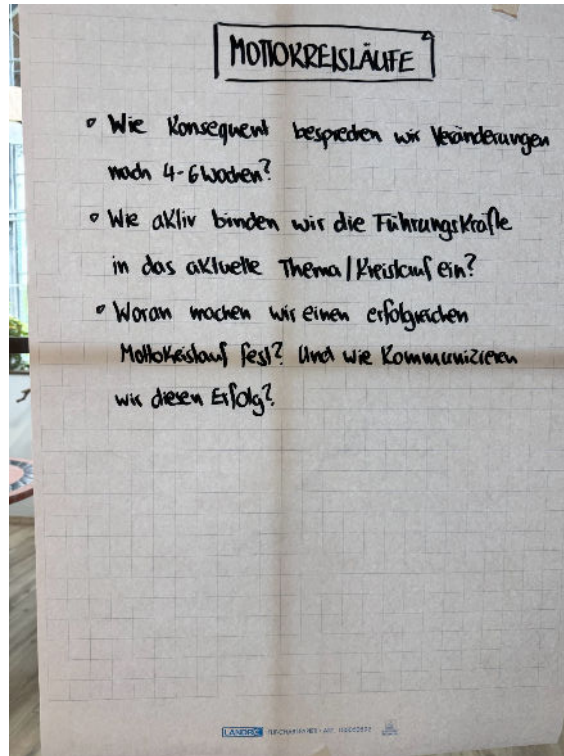 MOTTOKREISLÄUFE
Wie Konsequent besprechen wir Veränderungen
nach 4-6 Wochen?
Wie aktiv binden wir die Führungskräfte
in das aktuelle Thema/Kreislauf ein?
Woran machen wir einen erfolgreichen
Mottokreislauf fest? Und wie Kommunizieren
wir diesen Erfolg?
LANDRÉ